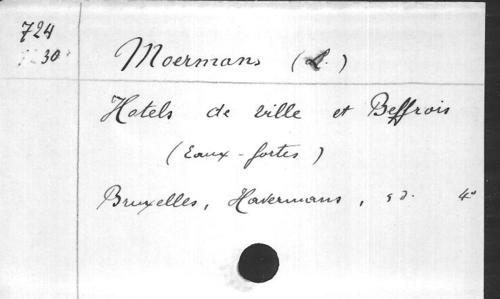 724
30
Moermans (L.)
Hotels de ville et Beffrois
(Eaux-fortes)
Bruxelles, Havermans, s d. 4°